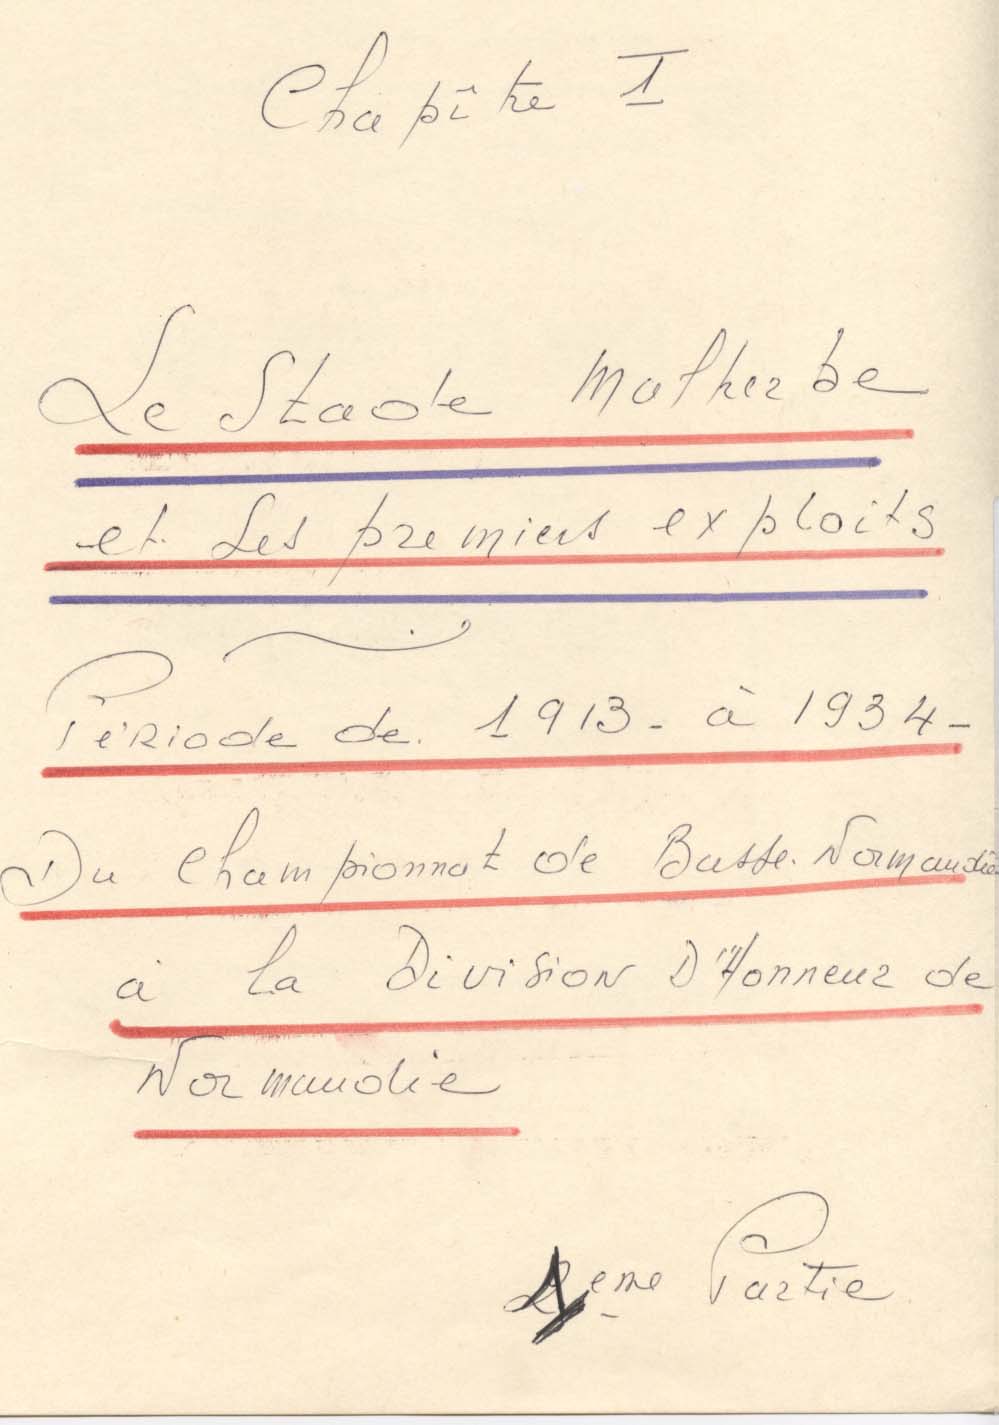 Chapître I
Le Stade Malherbe
et Les premiers exploits
Période de 1913 - à 1934 -
Du Championnat de Basse. Normandie
à la Division D'Honneur de
Normandie
1eme Partie